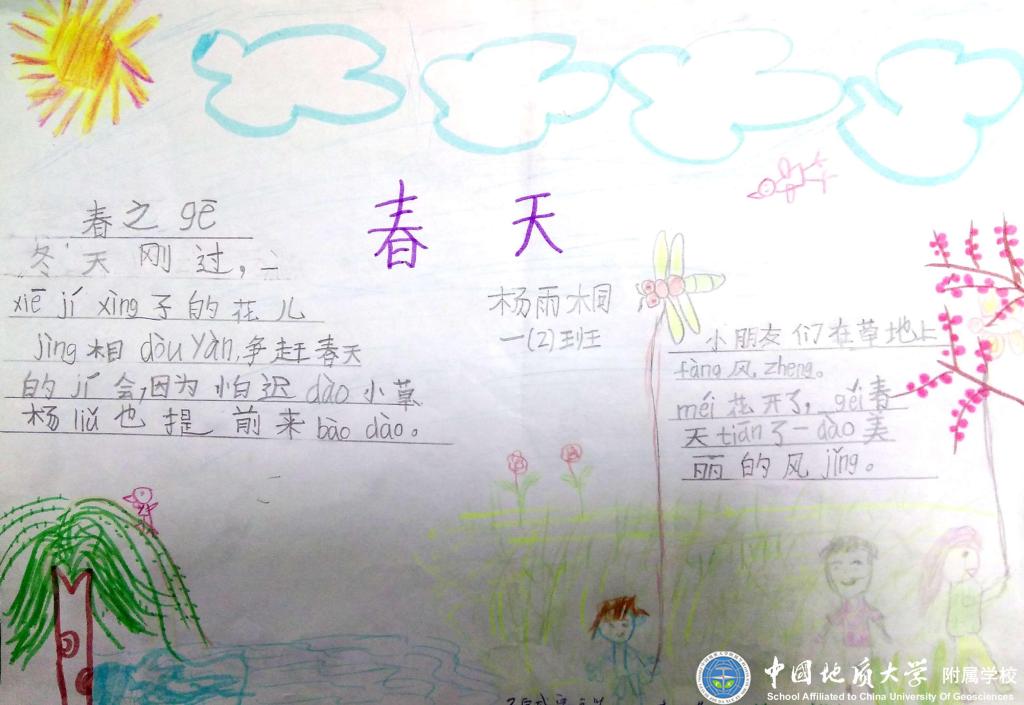 春天
春之gē
冬天刚过，一
xiē jí xìng子的花儿
jìng相dòu Yàn,争赶春天
的jī会,因为怕迟dào小草
杨liǔ也提前来bào dào。
杨雨桐
一(2)班
小朋友们在草地上
fàng风zheng。
méi花开了，gěi春
天tiān了一dào美
丽的风jǐng。
中国地质大学 附属学校
School Affiliated to China University Of Geosciences